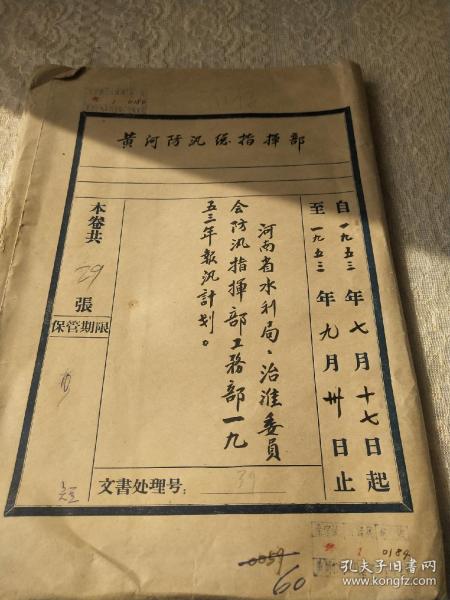 0180
黄河防汛总指揮部
自一九五三年七月十七日起
至一九五三年九月卅日止
河南省水利局、治淮委員
会防汛指揮部工務部一九
五三年報汛計划。
本卷共29張
保管期限
短
文書处理号：39
1 0184
0059
60
孔夫子旧书网
www.kongfz.com